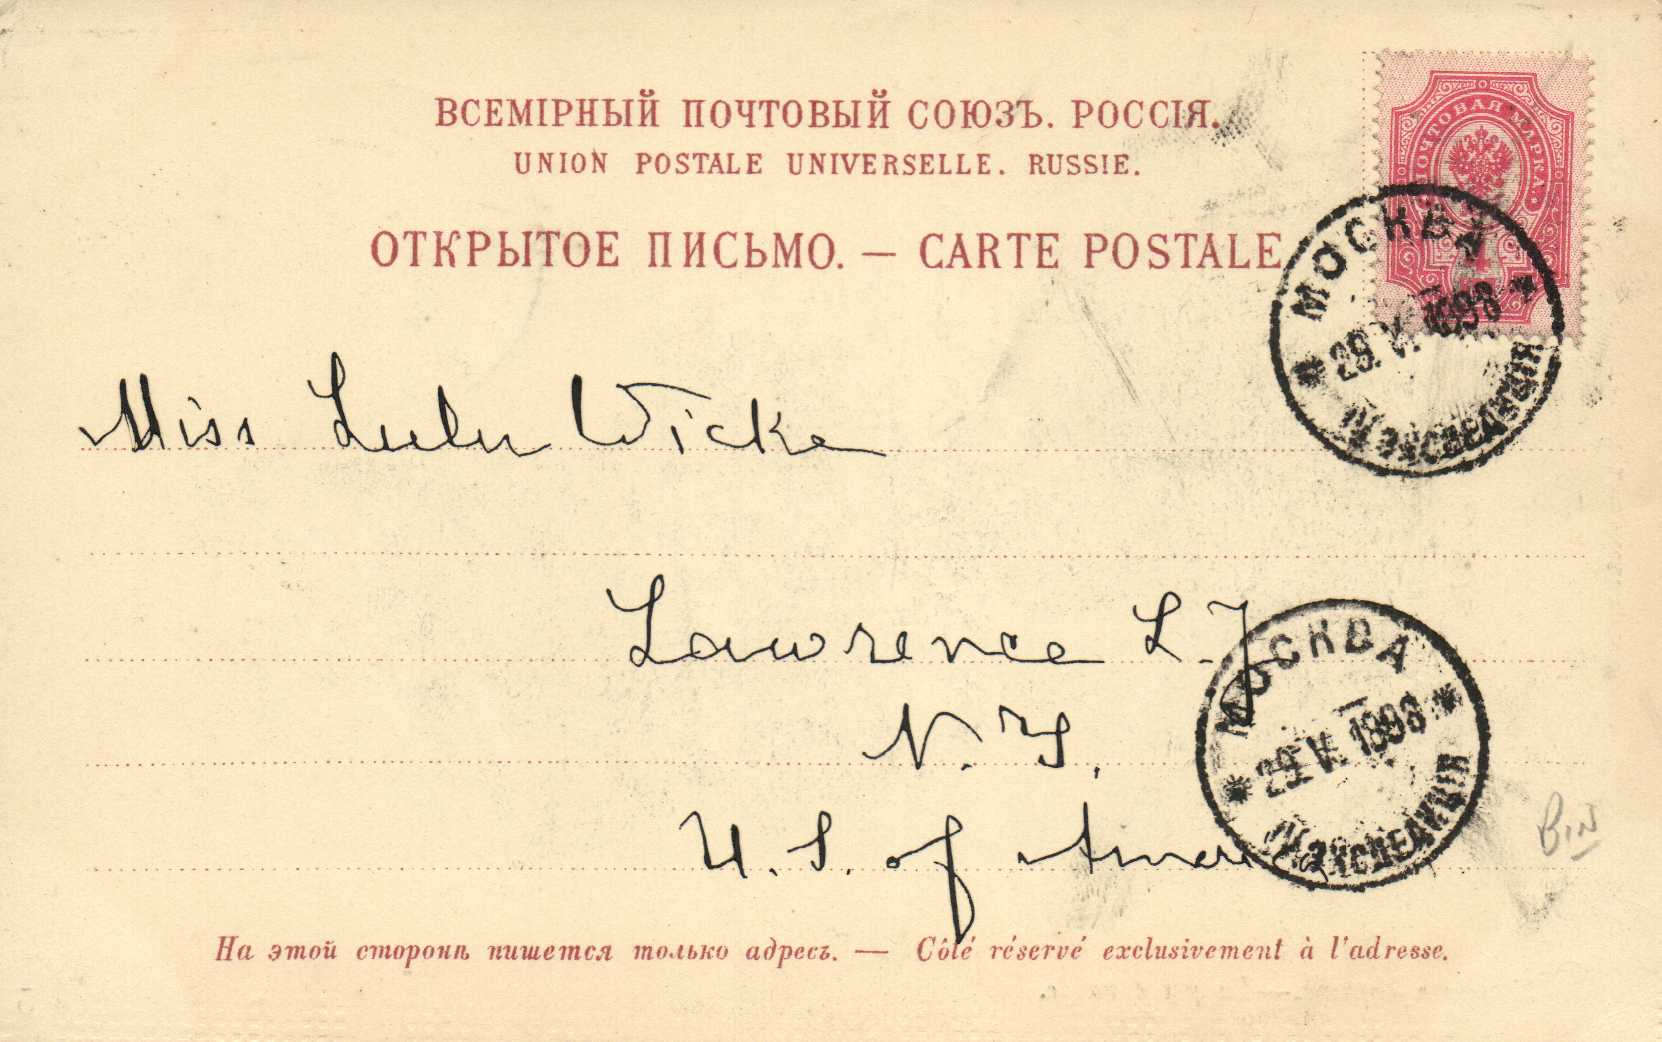 ВСЕМІРНЫЙ ПОЧТОВЫЙ СОЮЗЪ. РОССІЯ.
UNION POSTALE UNIVERSELLE. RUSSIE.
ОТКРЫТОЕ ПИСЬМО. — CARTE POSTALE
ПОЧТОВАЯ МАРКА
4
МОСКВА
29. V. 1898
ЭКСПЕДИЦІЯ
Miss Lulu Wicke
Lawrence L. I.
N. Y.
U. S. of Ameri
МОСКВА
29. V. 1898
ЭКСПЕДИЦІЯ
BIN
На этой сторонѣ пишется только адресъ. — Côté réservé exclusivement à l'adresse.